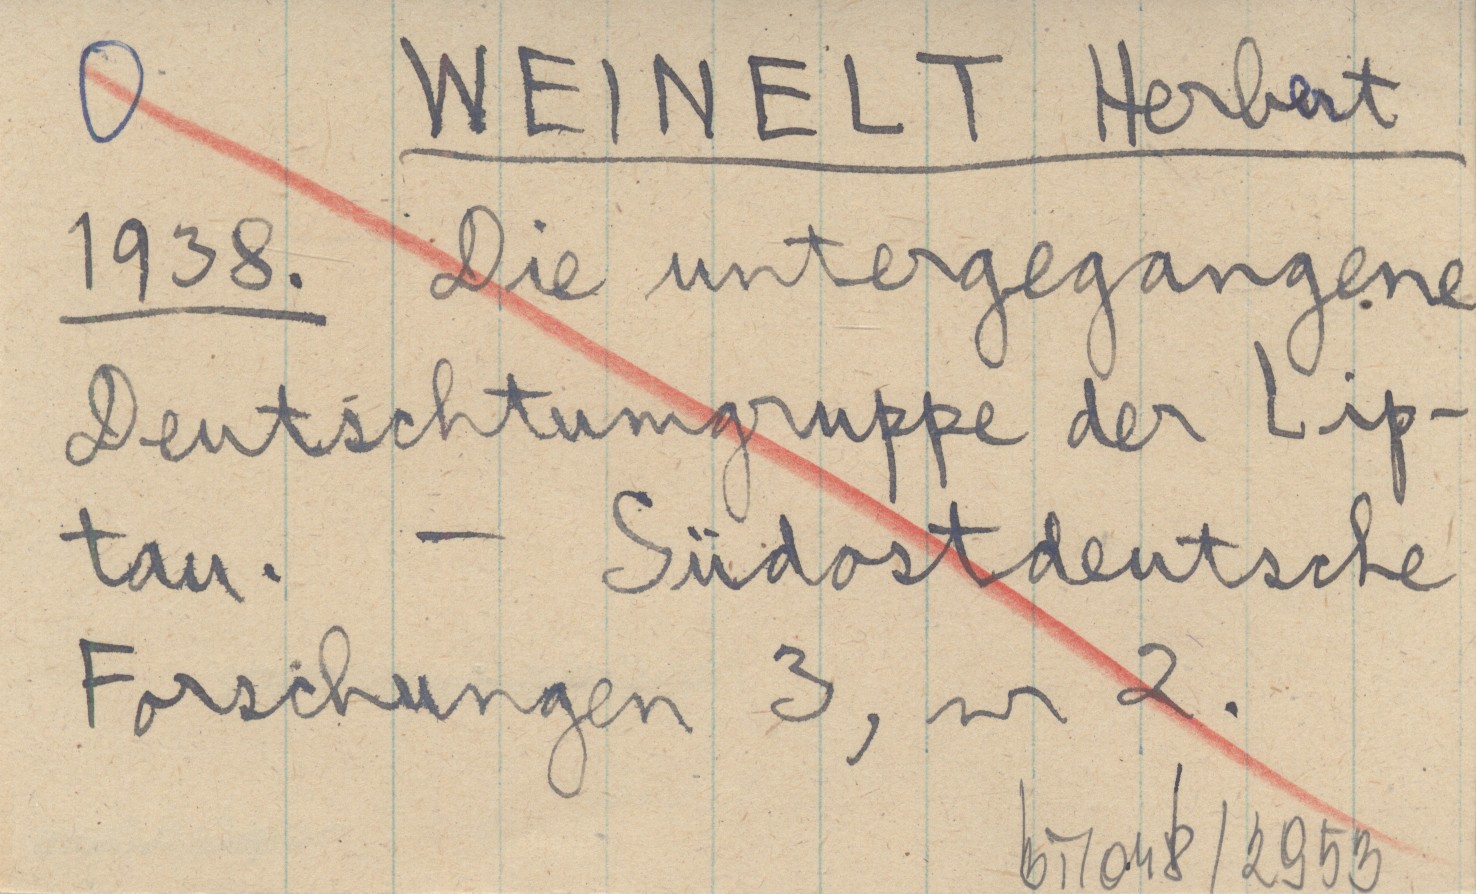 O WEINELT Herbert
1938. Die untergegangene
Deutschtumgruppe der Lip-
tau. – Südostdeutsche
Forschungen 3, nr 2.
/2953